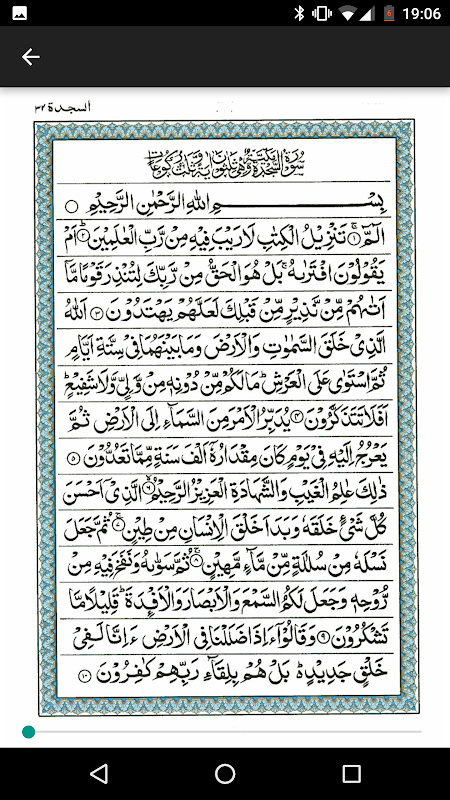 19:06
السجدة ۳۲
سُوْرَةُ السَّجْدَةِ مَكِّيَّةٌ وَّهِيَ ثَلٰثُوْنَ اٰيَةً وَّثَلٰثُ رُكُوْعَاتٍ
بِسْمِ اللّٰهِ الرَّحْمٰنِ الرَّحِيْمِ
الٓمّٓ ۱ تَنْزِيْلُ الْكِتٰبِ لَا رَيْبَ فِيْهِ مِنْ رَّبِّ الْعٰلَمِيْنَ ۲ اَمْ
يَقُوْلُوْنَ افْتَرٰىهُ ۚ بَلْ هُوَ الْحَقُّ مِنْ رَّبِّكَ لِتُنْذِرَ قَوْمًا مَّاۤ
اَتٰىهُمْ مِّنْ نَّذِيْرٍ مِّنْ قَبْلِكَ لَعَلَّهُمْ يَهْتَدُوْنَ ۳ اَللّٰهُ
الَّذِيْ خَلَقَ السَّمٰوٰتِ وَالْاَرْضَ وَمَا بَيْنَهُمَا فِيْ سِتَّةِ اَيَّامٍ
ثُمَّ اسْتَوٰى عَلَى الْعَرْشِ ؕ مَا لَكُمْ مِّنْ دُوْنِهٖ مِنْ وَّلِيٍّ وَّلَا شَفِيْعٍ ؕ
اَفَلَا تَتَذَكَّرُوْنَ ۴ يُدَبِّرُ الْاَمْرَ مِنَ السَّمَآءِ اِلَى الْاَرْضِ ثُمَّ
يَعْرُجُ اِلَيْهِ فِيْ يَوْمٍ كَانَ مِقْدَارُهٗۤ اَلْفَ سَنَةٍ مِّمَّا تَعُدُّوْنَ ۵
ذٰلِكَ عٰلِمُ الْغَيْبِ وَالشَّهَادَةِ الْعَزِيْزُ الرَّحِيْمُ ۶ الَّذِيْۤ اَحْسَنَ
كُلَّ شَيْءٍ خَلَقَهٗ وَبَدَاَ خَلْقَ الْاِنْسَانِ مِنْ طِيْنٍ ۷ ثُمَّ جَعَلَ
نَسْلَهٗ مِنْ سُلٰلَةٍ مِّنْ مَّآءٍ مَّهِيْنٍ ۸ ثُمَّ سَوّٰىهُ وَنَفَخَ فِيْهِ مِنْ
رُّوْحِهٖ وَجَعَلَ لَكُمُ السَّمْعَ وَالْاَبْصَارَ وَالْاَفْـِٕدَةَ ؕ قَلِيْلًا مَّا
تَشْكُرُوْنَ ۹ وَقَالُوْۤا ءَاِذَا ضَلَلْنَا فِي الْاَرْضِ ءَاِنَّا لَفِيْ
خَلْقٍ جَدِيْدٍ ؕ بَلْ هُمْ بِلِقَآءِ رَبِّهِمْ كٰفِرُوْنَ ۱۰